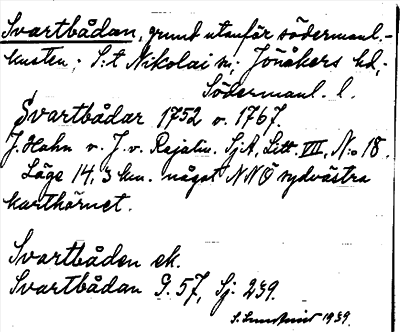 Svartbådan, grund utanför södermanl.-
kusten, S:t Nikolai sn, Jönåkers hd,
Södermanl. l.
Svartbådar 1752 o. 1767.
J. Hahn o. J. v. Rajalin. SjA, Litt. VIII, N:o 18.
Läge 14,3 km. något NNÖ sydvästra
karthörnet.
Svartbåden ek.
Svartbådan G. 57, Sj: 239.
1939.